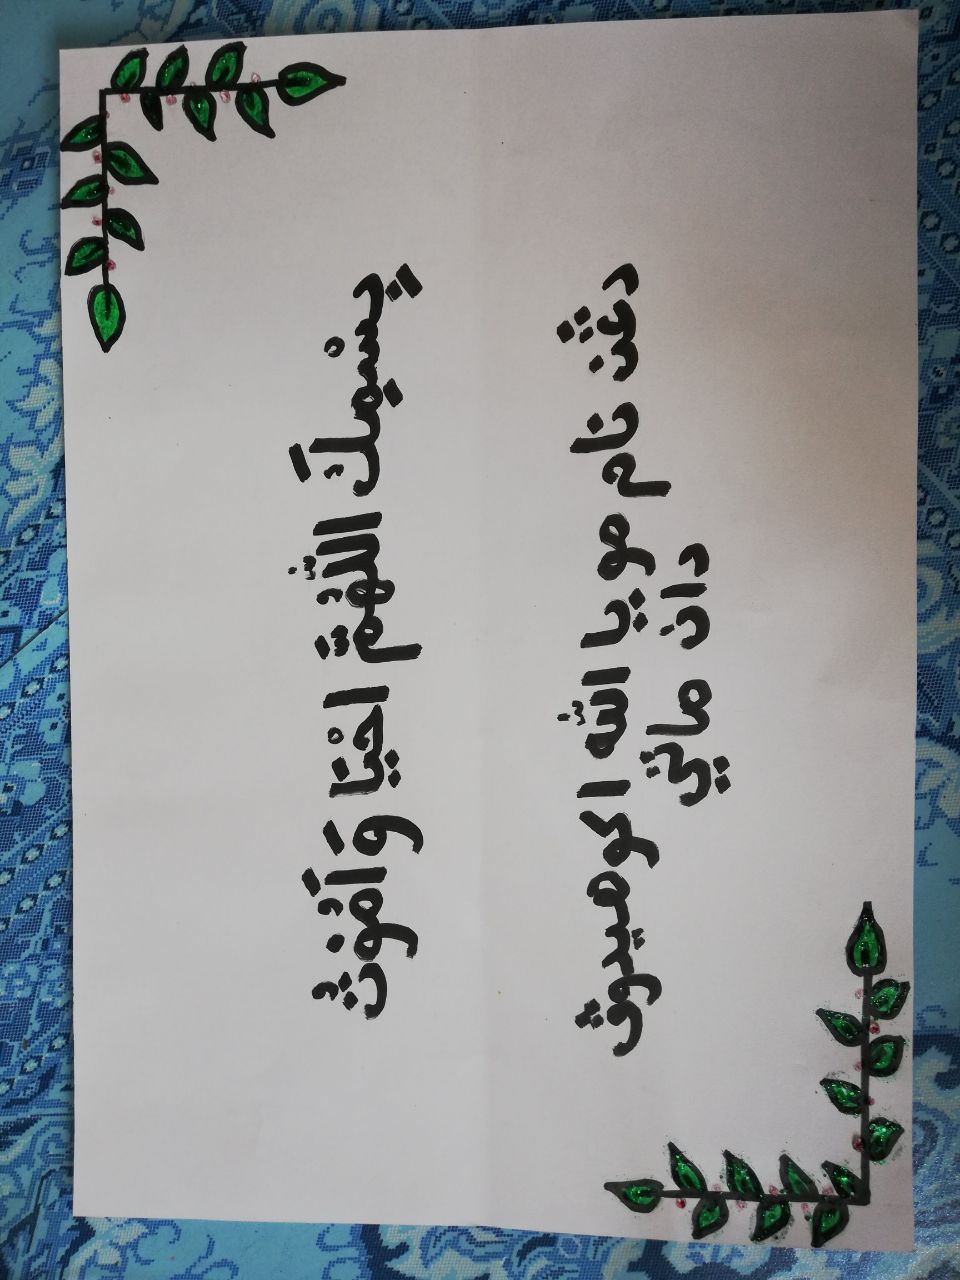 بِسْمِكَ اللّٰهُمَّ احْيَا وَاَمُوْتُ
دڠن نام مو يا الله اكو هيدوڤ
دان ماتي